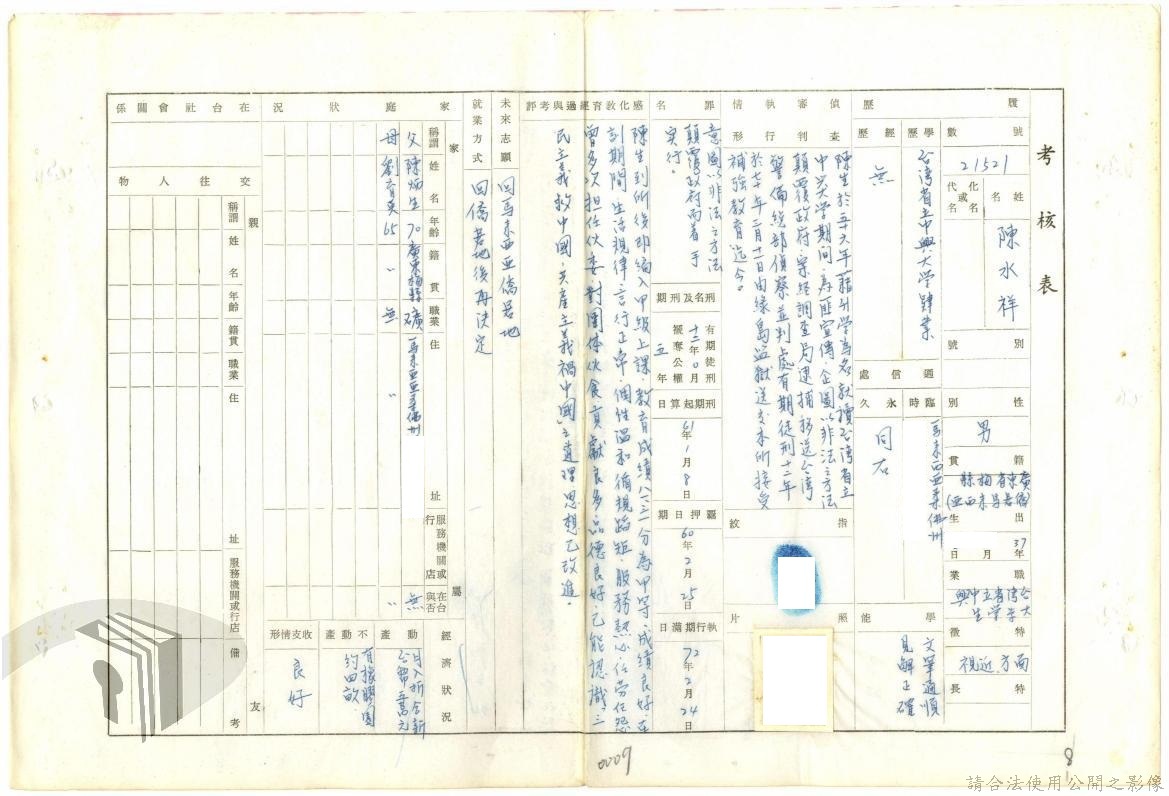 考核表
履歷
號數
21521
姓名
陳水祥
化名或代名
別號
性別
男
籍貫
廣東省梅縣
(僑居馬來西亞)
出生
37年 月 日
職業
台灣省立中興大學学生
特徵
方面、近視
特長
學歷
台湾省立中興大学肄業
經歷
無
通信處
臨時
馬來西亞柔佛州
永久
同右
學能
文筆通順
見解正確
偵查審判執行情形
陳生於五六年藉引学為名就讀台湾省立
中興大学期间,為匪宣傳,企圖以非法之方法
顛覆政府,案經調查局逮捕移送台湾
警備總部偵察並判處有期徒刑十二年
於七十年三月十一日由緑島监獄送交本所接受
補強教育迄今。
指紋
照片
罪名
意圖以非法之方法
顛覆政府而着手
实行。
刑名及刑期
有期徒刑
十二年0月
褫奪公權
五年
刑期起算日
61年1月8日
羈押日期
60年2月25日
執行期滿日
72年2月24日
感化教育經過與考評
陳生到所後即編入甲級上課,教育成績八三.一分為甲等,成績良好,在
訓期間生活規律言行正常,個性温和循規蹈矩,服務熱心,任劳任怨
曾多次担任伙委,對團体伙食貢獻良多,品德良好,已能認識「三
民主義救中國,共產主義禍中國」之道理思想已改進。
未來志願
回馬來西亞僑居地
就業方式
回僑居地後再決定
家庭狀況
家屬
稱謂
姓名
年齡
籍貫
職業
住址
服務機關或行店
在台與否
父
陳炳生
70
廣東梅縣
礦
馬來西亞柔佛州
無
母
劉育英
65
〃
無
〃
〃
經濟狀況
動產
月入折合新
台幣五萬元
不動產
有橡膠園
約四畝
收支情形
良好
在台社會關係
交往人物
親友
稱謂
姓名
年齡
籍貫
職業
住址
服務機關或行店
備考
0009
8
請合法使用公開之影像